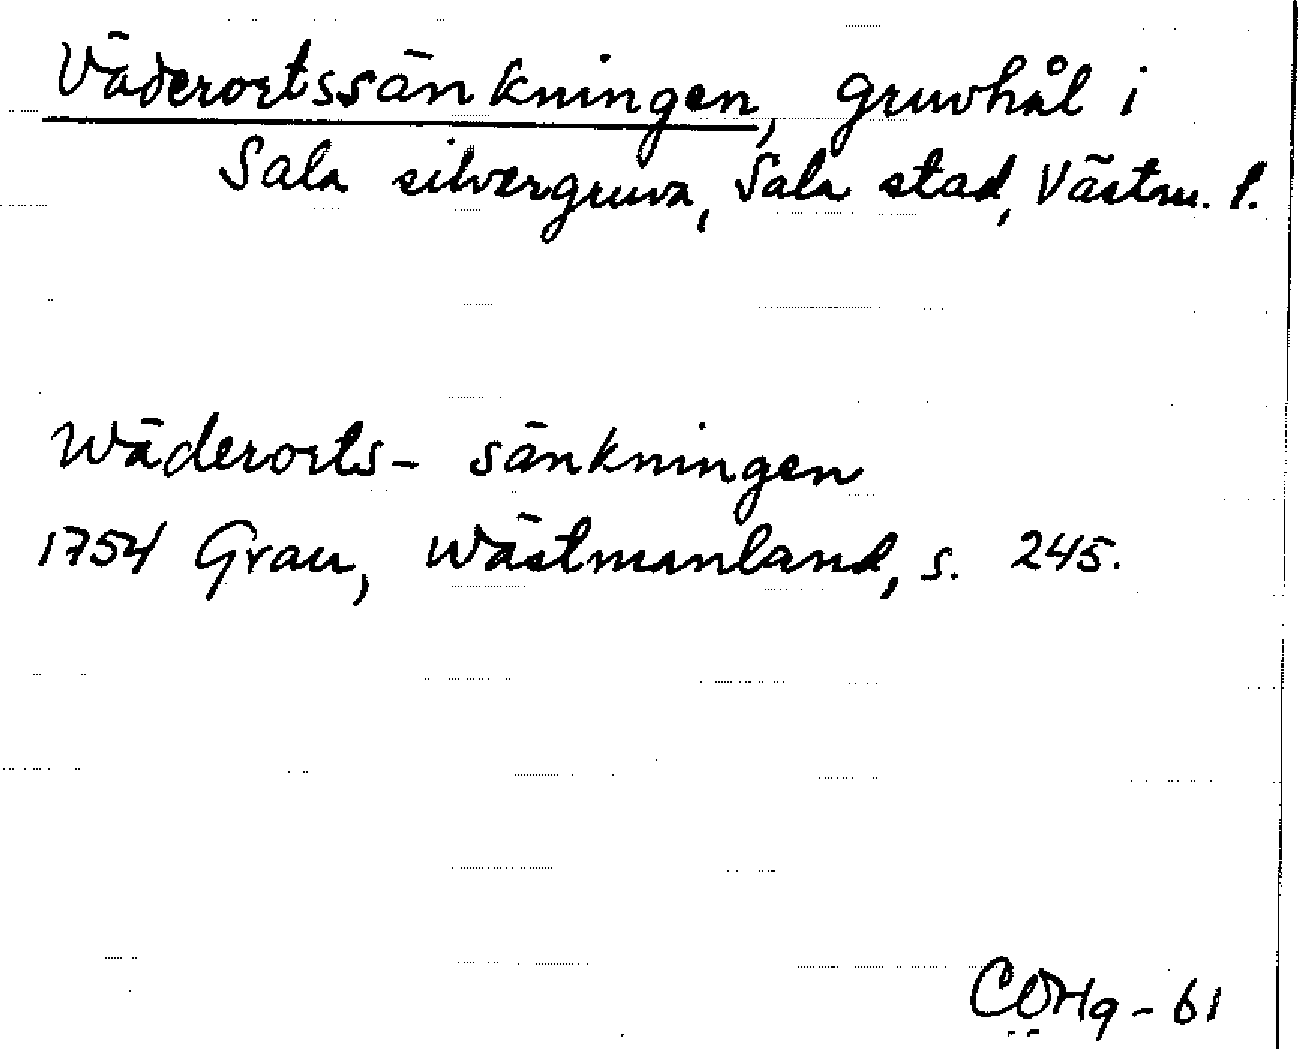 Väderortssänkningen, gruvhål i
Sala silvergruva, Sala stad, Västm. l.
Wäderorts- sänkningen
1754 Grau, Wästmanland, s. 245.
CÖHg-61